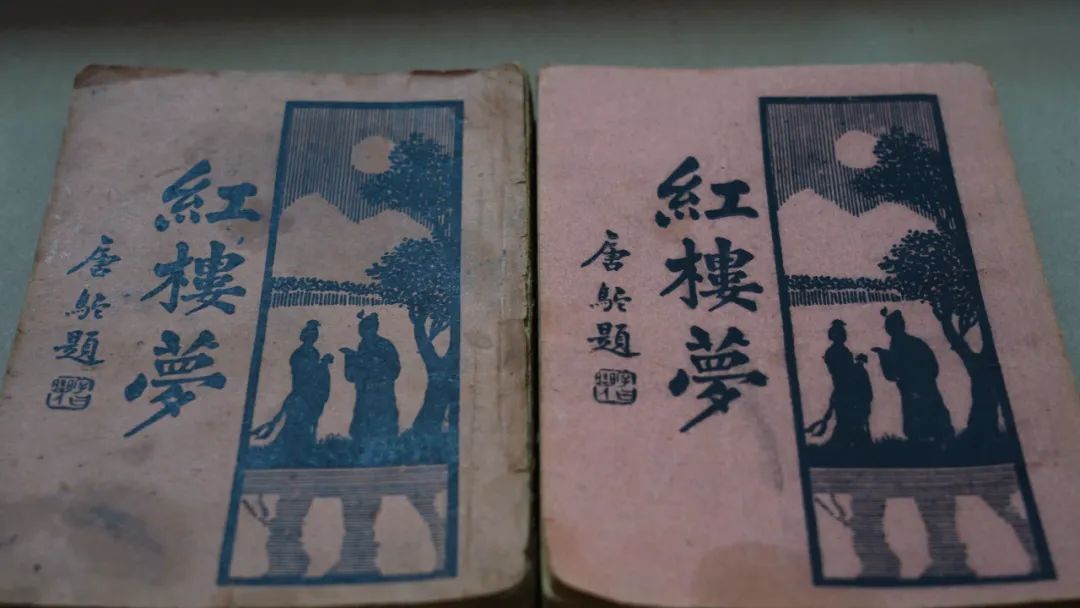 紅樓夢
唐駝題
紅樓夢
唐駝題